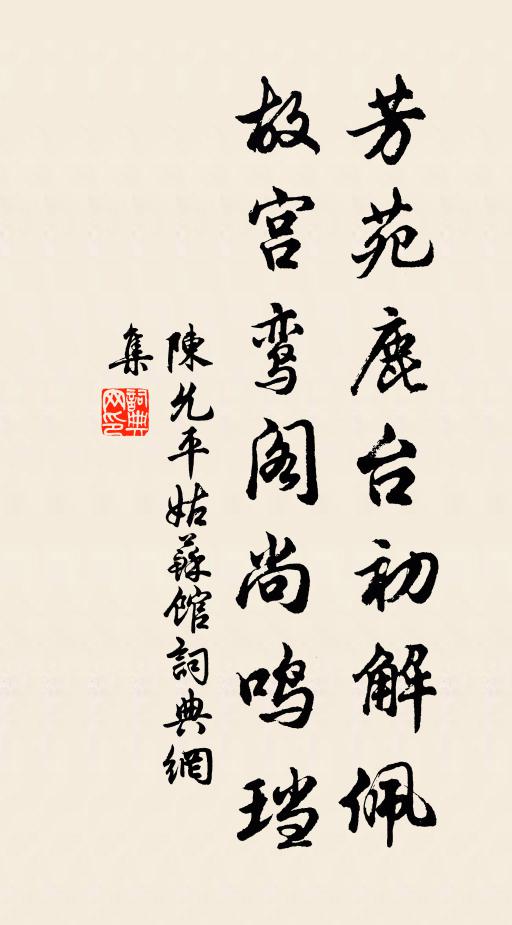 芳苑鹿台初解佩
故宫鸾阁尚鸣珰
陳允平姑蘇馆詞典網
集
詞典网印